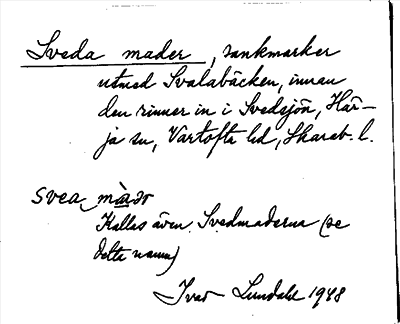 Sveda mader, sankmarker
utmed Svalabäcken, innan
den rinner in i Svedsjön, Här-
ja sn, Vartofta hd, Skarab. l.
svea màdər
Kallas även Svedmaderna (se
detta namn)
Ivar Lundahl 1948